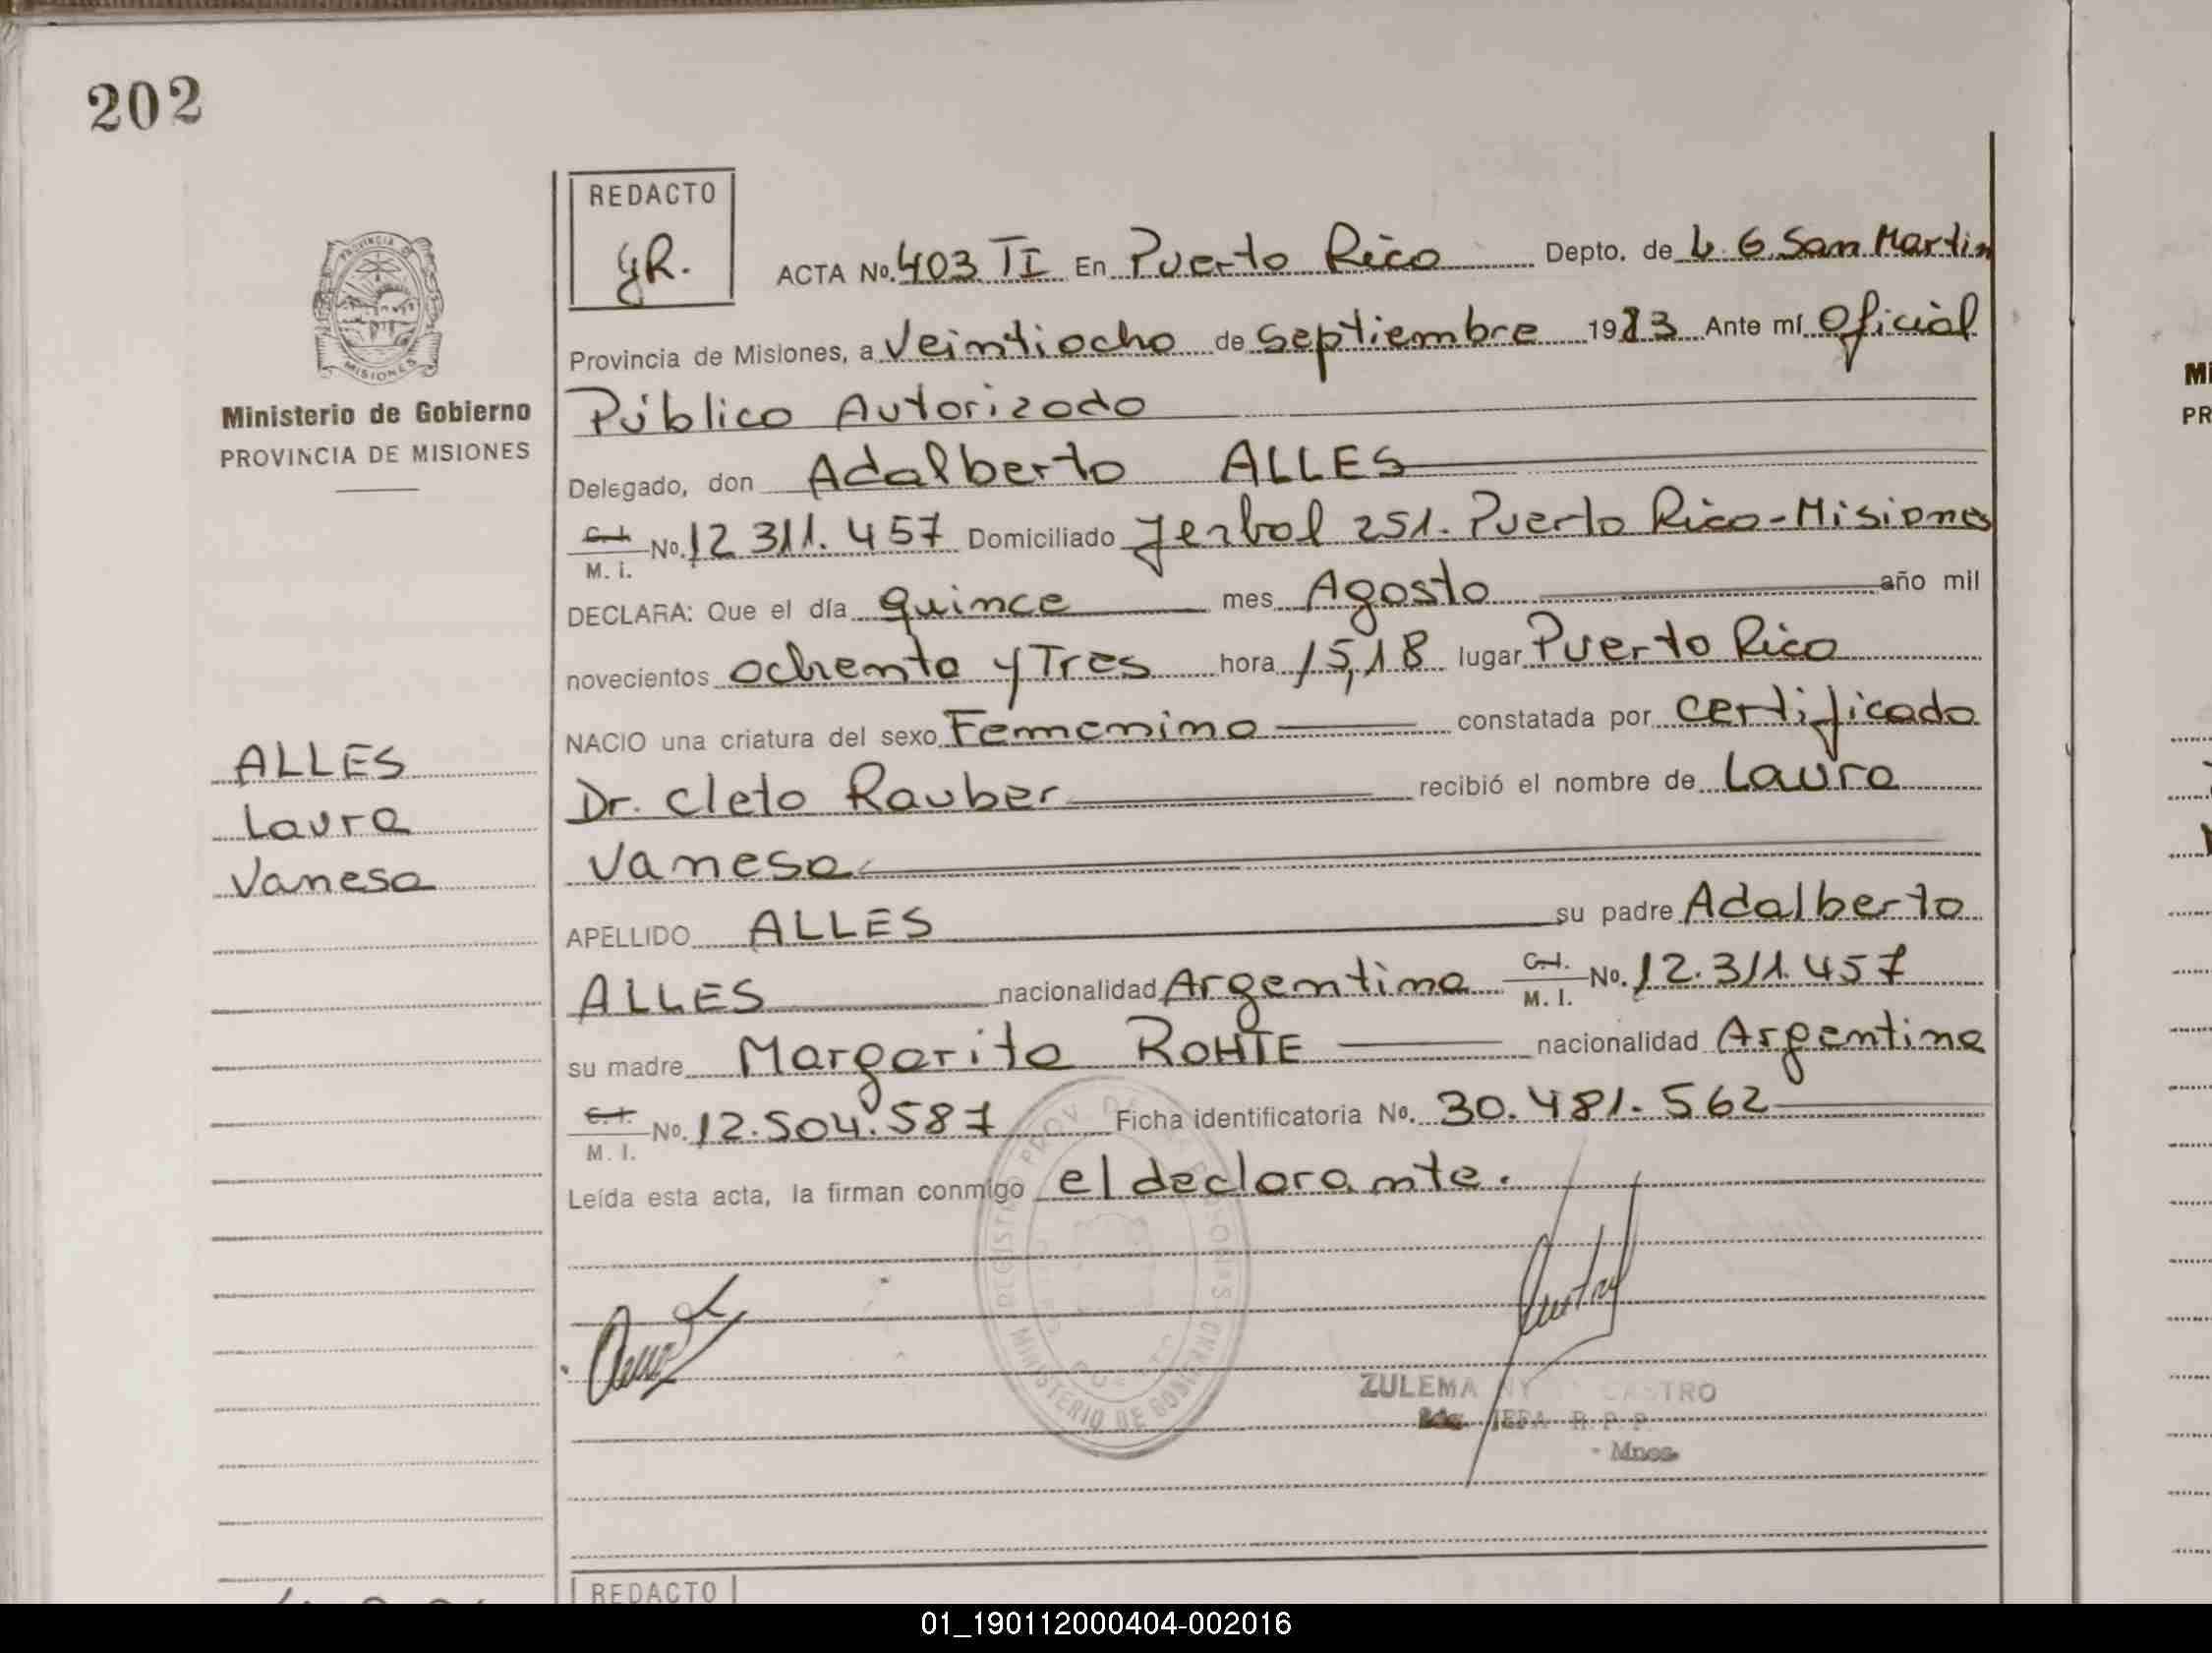 202
REDACTO
yR.
ACTA No. 403 TI En Puerto Rico Depto. de L. G. San Martin
Provincia de Misiones, a Veintiocho de septiembre 1983 Ante mí Oficial
Público Autorizado
Delegado, don Adalberto ALLES
C.I. M. I. No. 12.311.457 Domiciliado Yerbal 251. Puerto Rico-Misiones
DECLARA: Que el día quince mes Agosto año mil
novecientos ochenta y Tres hora 15,18 lugar Puerto Rico
NACIO una criatura del sexo Femenino constatada por certificado
Dr. Cleto Rauber recibió el nombre de Laura
Vanesa
APELLIDO ALLES su padre Adalberto
ALLES nacionalidad Argentina C.I. M. I. No. 12.311.457
su madre Margarita ROHTE nacionalidad Argentina
C.I. M. I. No. 12.504.587 Ficha identificatoria No. 30.481.562
Leída esta acta, la firman conmigo el declarante.
MINISTERIO DE GOBIERNO
ZULEMA CASTRO
JEFA R. P. P.
Mnes.
REDACTO
MISIONES
Ministerio de Gobierno
PROVINCIA DE MISIONES
ALLES
Laura
Vanesa
Mi
PR
01_190112000404-002016